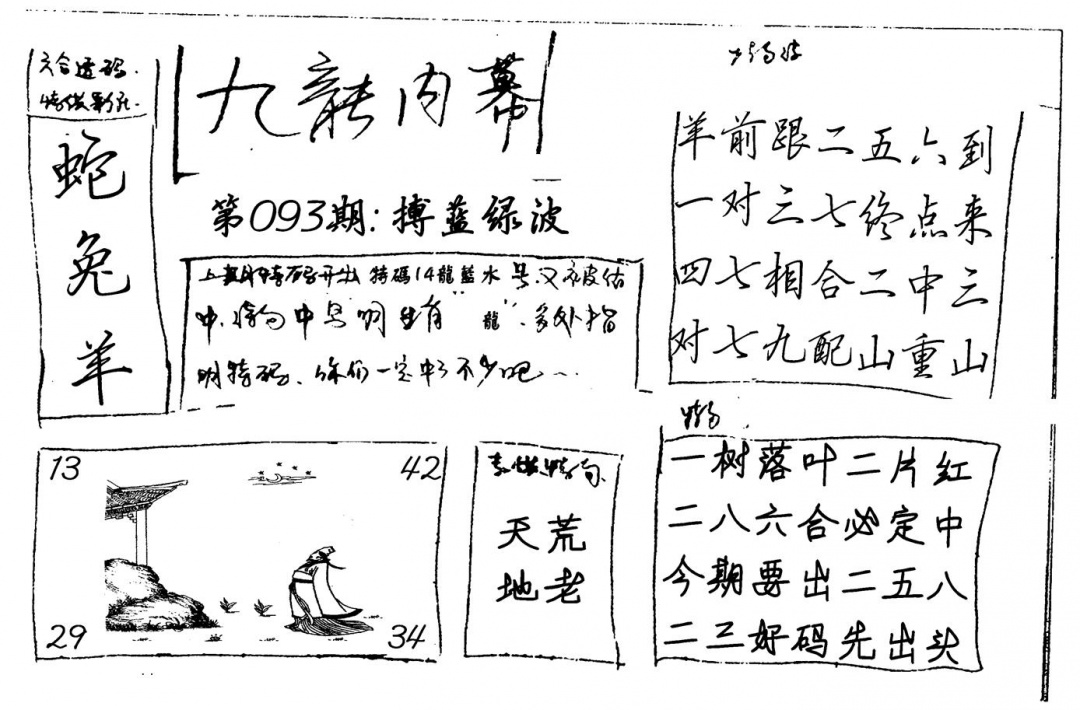 六合透码
蛇
兔
羊
九龍内幕
第093期:搏蓝绿波
上期特码开出 特碼14龍藍水 号又被估
中, 中 明 有 "龍", 多处指
明特码、你们一定中了不少吧
羊前跟二五六到
一对三七终点来
四七相合二中三
对七九配山重山
13
42
29
34
天荒
地老
特
一树落叶二片红
二八六合必定中
今期要出二五八
二三好码先出头